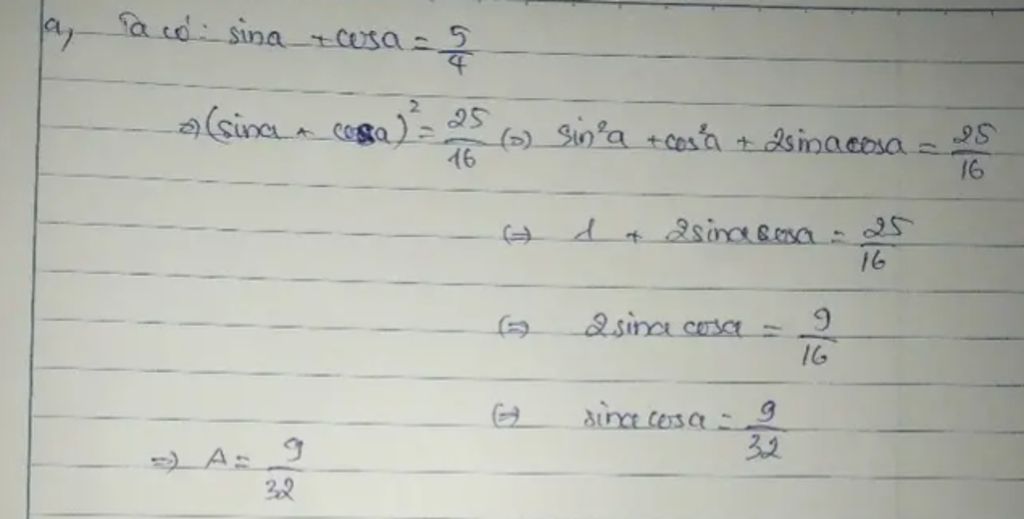 a, Ta có: sina + cosa = 5/4
=> (sina + cosa)² = 25/16 <=> sin²a + cos²a + 2sinacosa = 25/16
<=> 1 + 2sinacosa = 25/16
<=> 2sina cosa = 9/16
<=> sina cosa = 9/32
=> A = 9/32